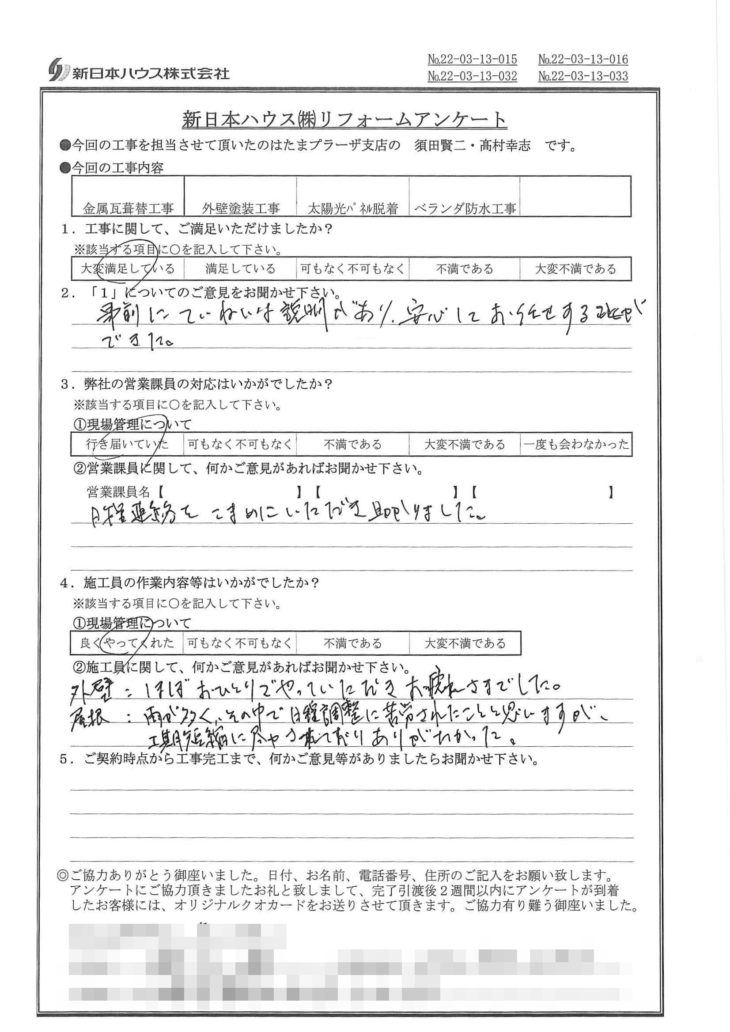 新日本ハウス株式会社
№22-03-13-015 №22-03-13-016
№22-03-13-032 №22-03-13-033
新日本ハウス㈱リフォームアンケート
●今回の工事を担当させて頂いたのはたまプラーザ支店の 須田賢二・髙村幸志 です。
●今回の工事内容
金属瓦葺替工事 外壁塗装工事 太陽光ﾊﾟﾈﾙ脱着 ベランダ防水工事
1．工事に関して、ご満足いただけましたか？
※該当する項目に○を記入して下さい。
大変満足している 満足している 可もなく不可もなく 不満である 大変不満である
2．「1」についてのご意見をお聞かせ下さい。
事前にていねいな説明があり、安心してお任せする事が
できた。
3．弊社の営業課員の対応はいかがでしたか？
※該当する項目に○を記入して下さい。
①現場管理について
行き届いていた 可もなく不可もなく 不満である 大変不満である 一度も会わなかった
②営業課員に関して、何かご意見があればお聞かせ下さい。
営業課員名【 】【 】【 】
日程連絡をこまめにいただき助かりました。
4．施工員の作業内容等はいかがでしたか？
※該当する項目に○を記入して下さい。
①現場管理について
良くやってくれた 可もなく不可もなく 不満である 大変不満である
②施工員に関して、何かご意見があればお聞かせ下さい。
外壁：ほぼおひとりでやっていただきお疲れさまでした。
屋根：雨が多く、その中で日程調整に苦労されたことと思いますが、
工期短縮に尽力されておりありがたかった。
5．ご契約時点から工事完工まで、何かご意見等がありましたらお聞かせ下さい。
◎ご協力ありがとう御座いました。日付、お名前、電話番号、住所のご記入をお願い致します。
アンケートにご協力頂きましたお礼と致しまして、完了引渡後２週間以内にアンケートが到着
したお客様には、オリジナルクオカードをお送りさせて頂きます。ご協力有り難う御座いました。